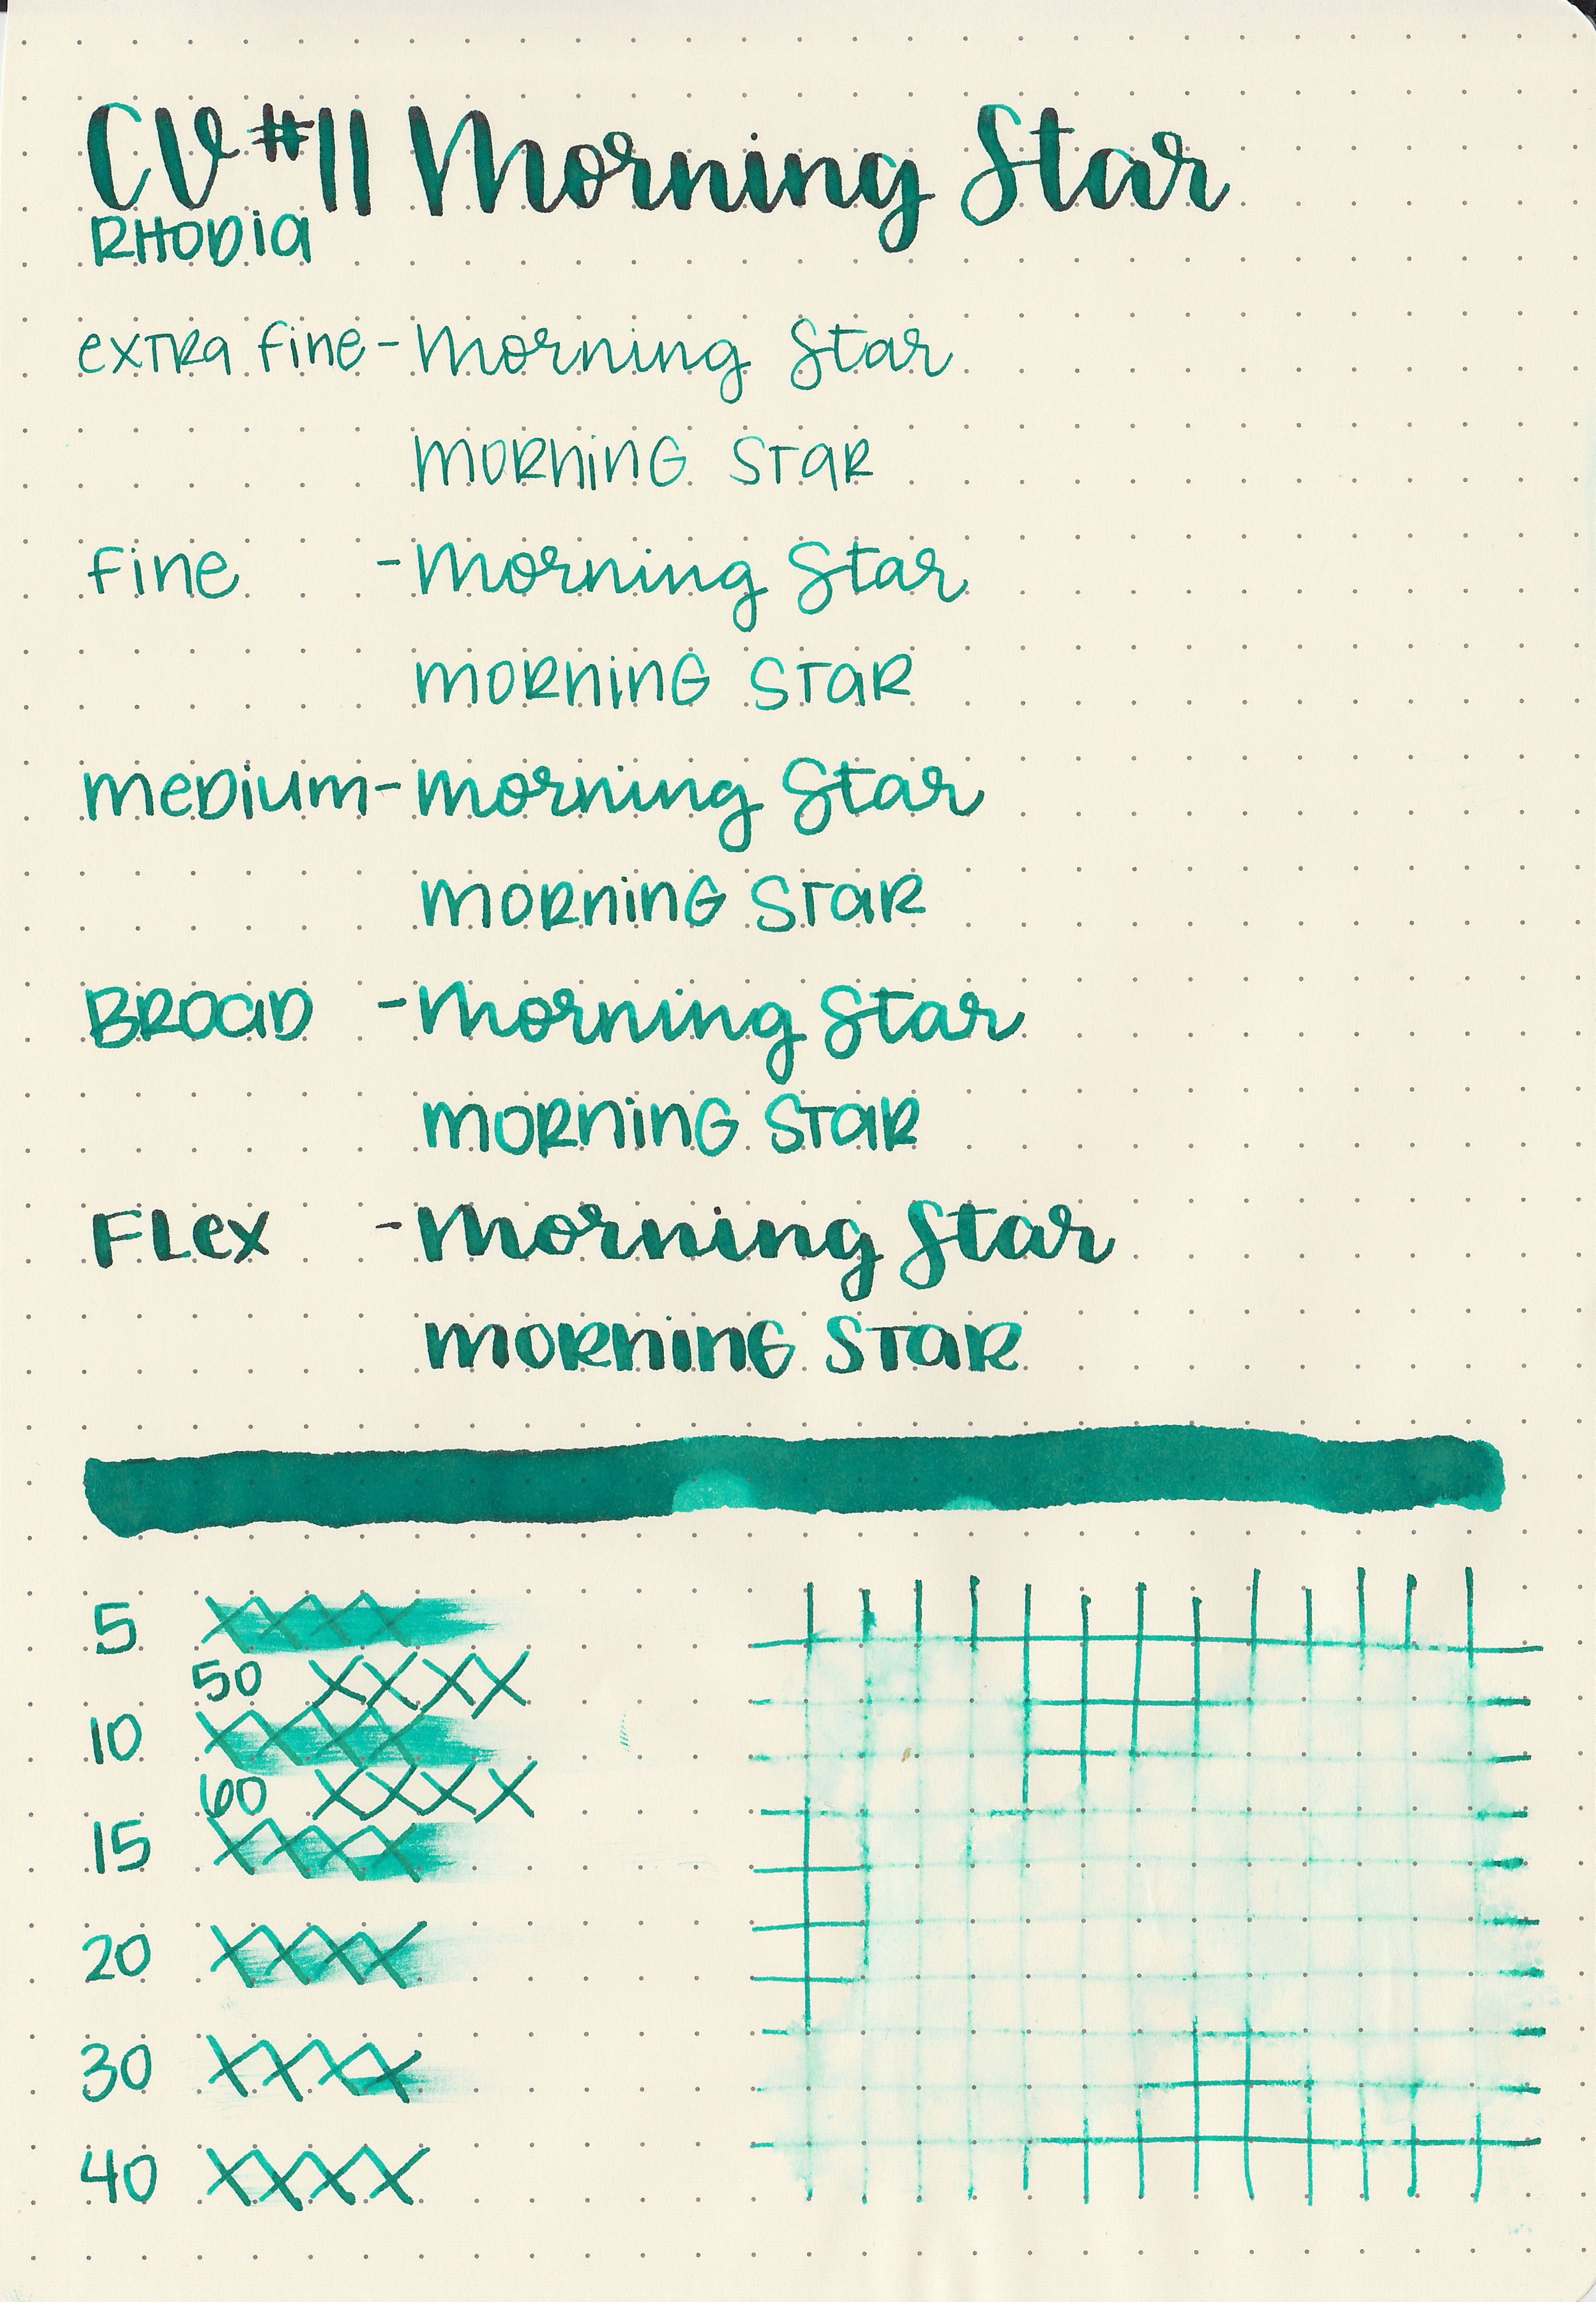 CV #11 Morning Star
RHODIA
extra fine - Morning Star
MORNING STAR
fine - Morning Star
MORNING STAR
medium - Morning Star
MORNING STAR
BROAD - Morning Star
MORNING STAR
FLEX - Morning Star
MORNING STAR
5 XXXX
50 XXXX
10 XXXX
60 XXXX
15 XXXX
20 XXXX
30 XXXX
40 XXXX